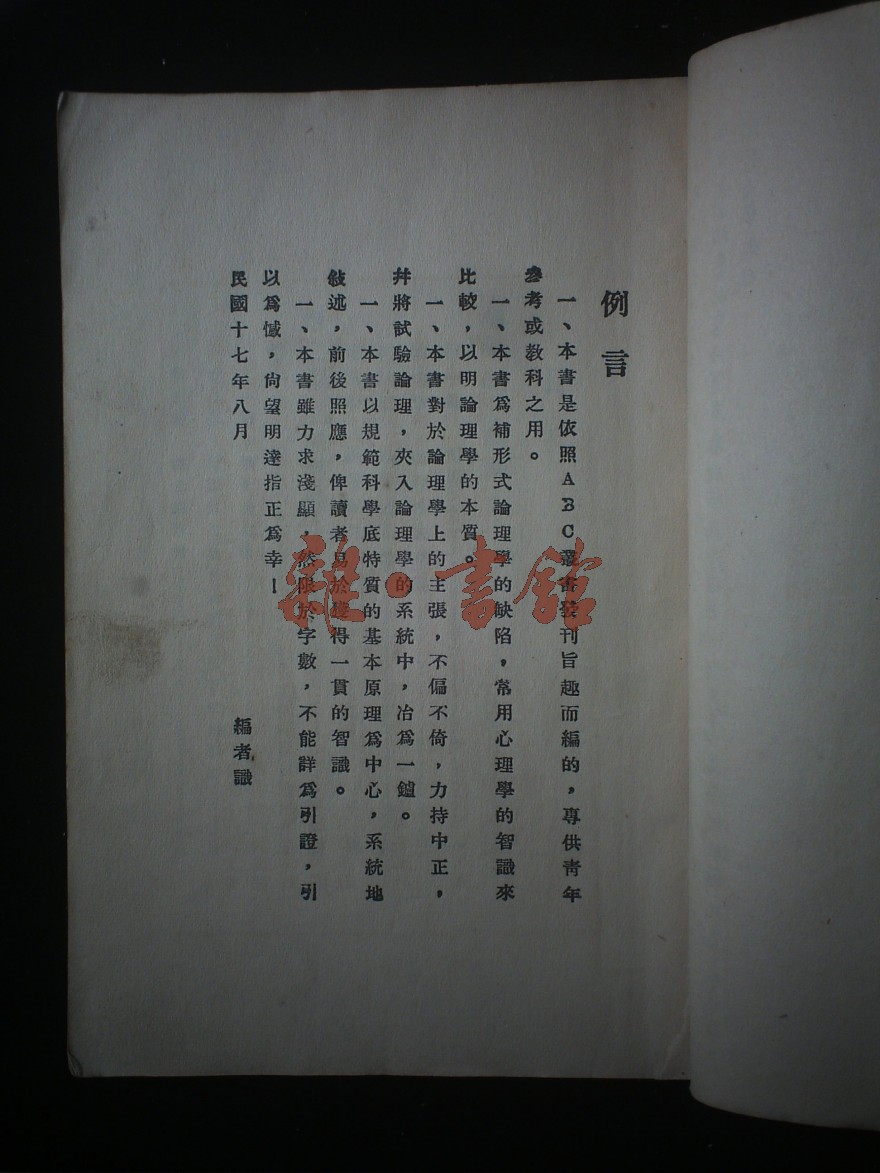 例言
一、本書是依照ABC叢書發刊旨趣而編的，專供靑年
參考或敎科之用。
一、本書爲補形式論理學的缺陷，常用心理學的智識來
比較，以明論理學的本質。
一、本書對於論理學上的主張，不偏不倚，力持中正，
幷將試驗論理，夾入論理學的系統中，冶爲一鑪。
一、本書以規範科學底特質的基本原理爲中心，系統地
敍述，前後照應，俾讀者易於獲得一貫的智識。
一、本書雖力求淺顯，然限於字數，不能詳爲引證，引
以爲憾，尙望明達指正爲幸！
民國十七年八月
編者識
雜·書館